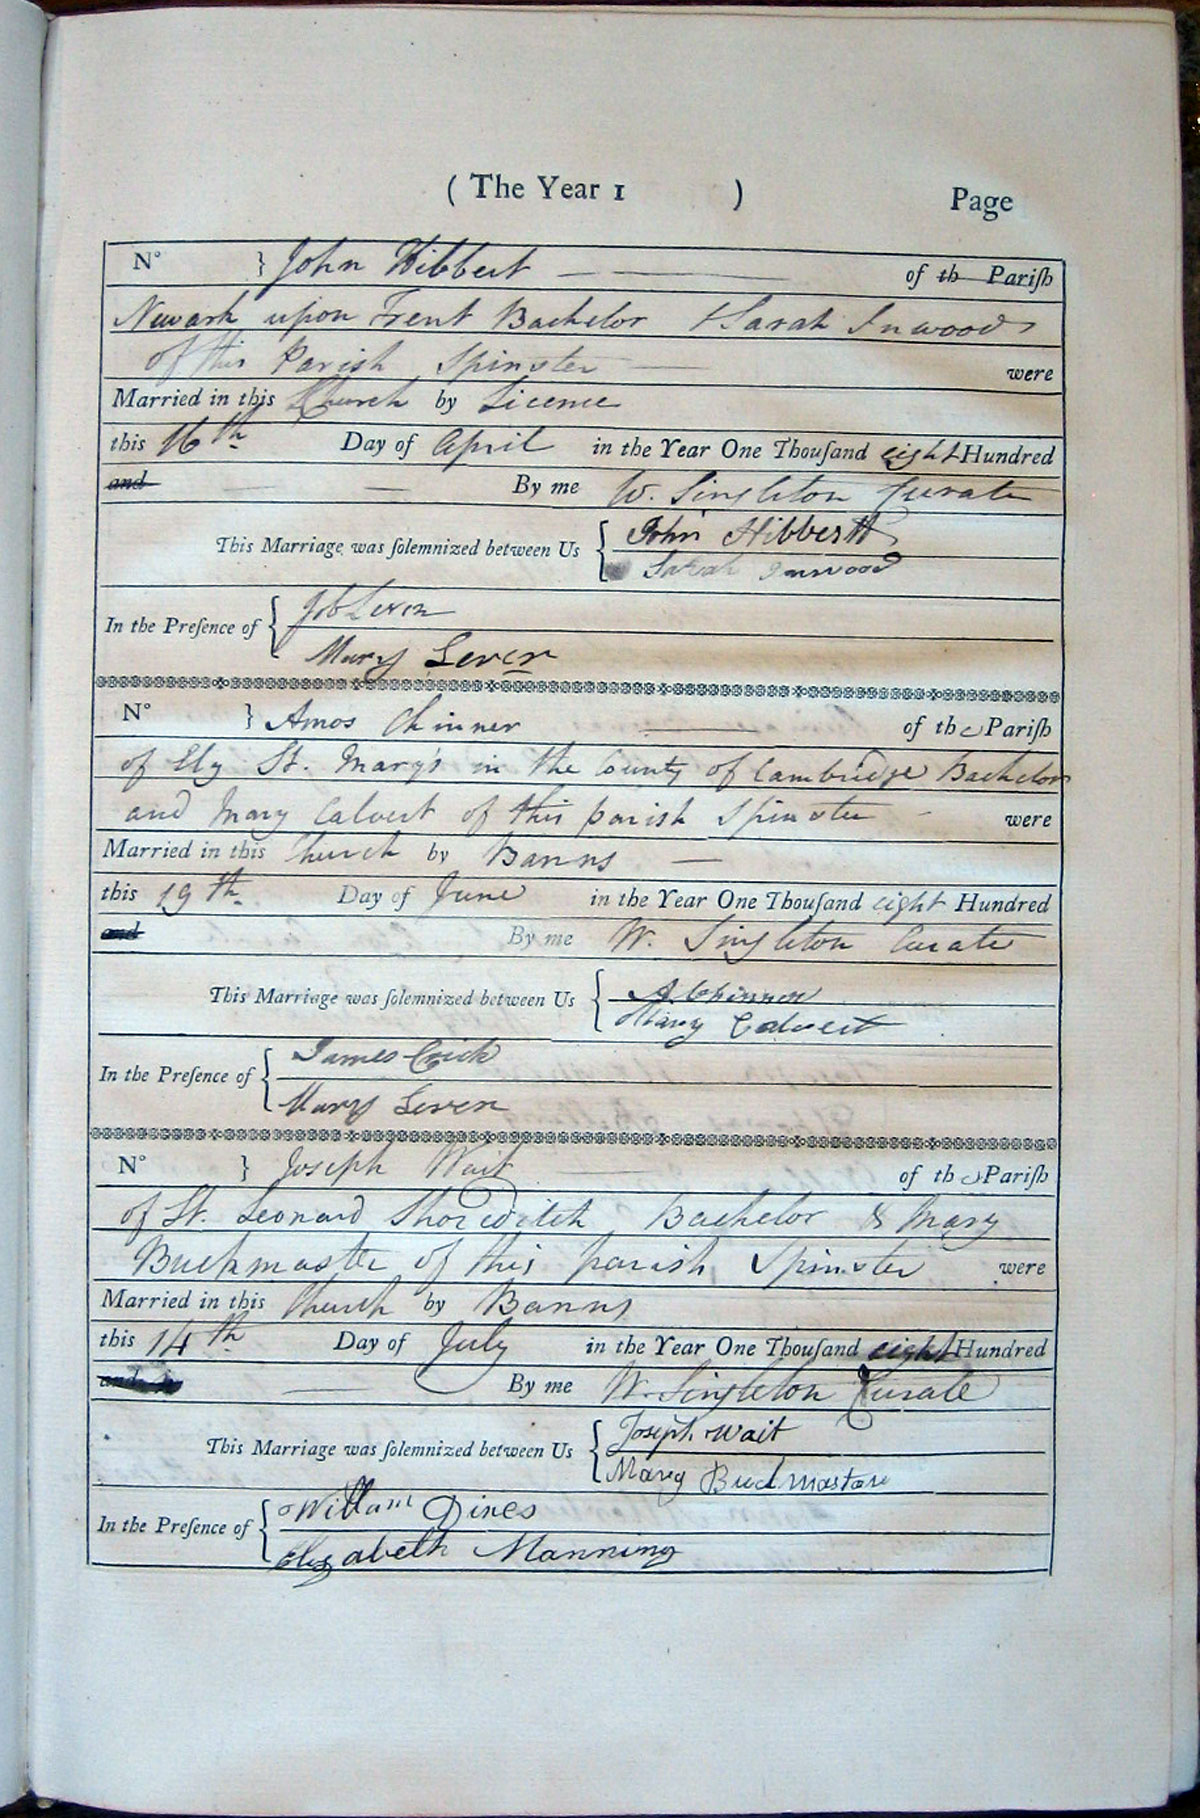 ( The Year 1 ) Page
No } John Hibbert of th Pariſh
Newark upon Trent Bachelor & Sarah Inwood
of this Parish Spinster were
Married in this Church by Licence
this 16th Day of April in the Year One Thouſand eight Hundred
and By me W. Singleton Curate
This Marriage was ſolemnized between Us { John Hibbert
Sarah Inwood
In the Preſence of { Job Lever
Mary Lever
No } Amos Chinner of the Pariſh
of Ely St. Mary's in the County of Cambridge Bachelor
and Mary Calvert of this parish Spinster were
Married in this Church by Banns
this 19th Day of June in the Year One Thouſand eight Hundred
and By me W. Singleton Curate
This Marriage was ſolemnized between Us { A Chinner
Mary Calvert
In the Preſence of { James Crick
Mary Lever
No } Joseph Wait of the Pariſh
of St. Leonard Shoreditch Bachelor & Mary
Buckmaster of this parish Spinster were
Married in this Church by Banns
this 14th Day of July in the Year One Thouſand eight Hundred
and By me W. Singleton Curate
This Marriage was ſolemnized between Us { Joseph Wait
Mary Buckmaster
In the Preſence of { William Dines
Elizabeth Manning